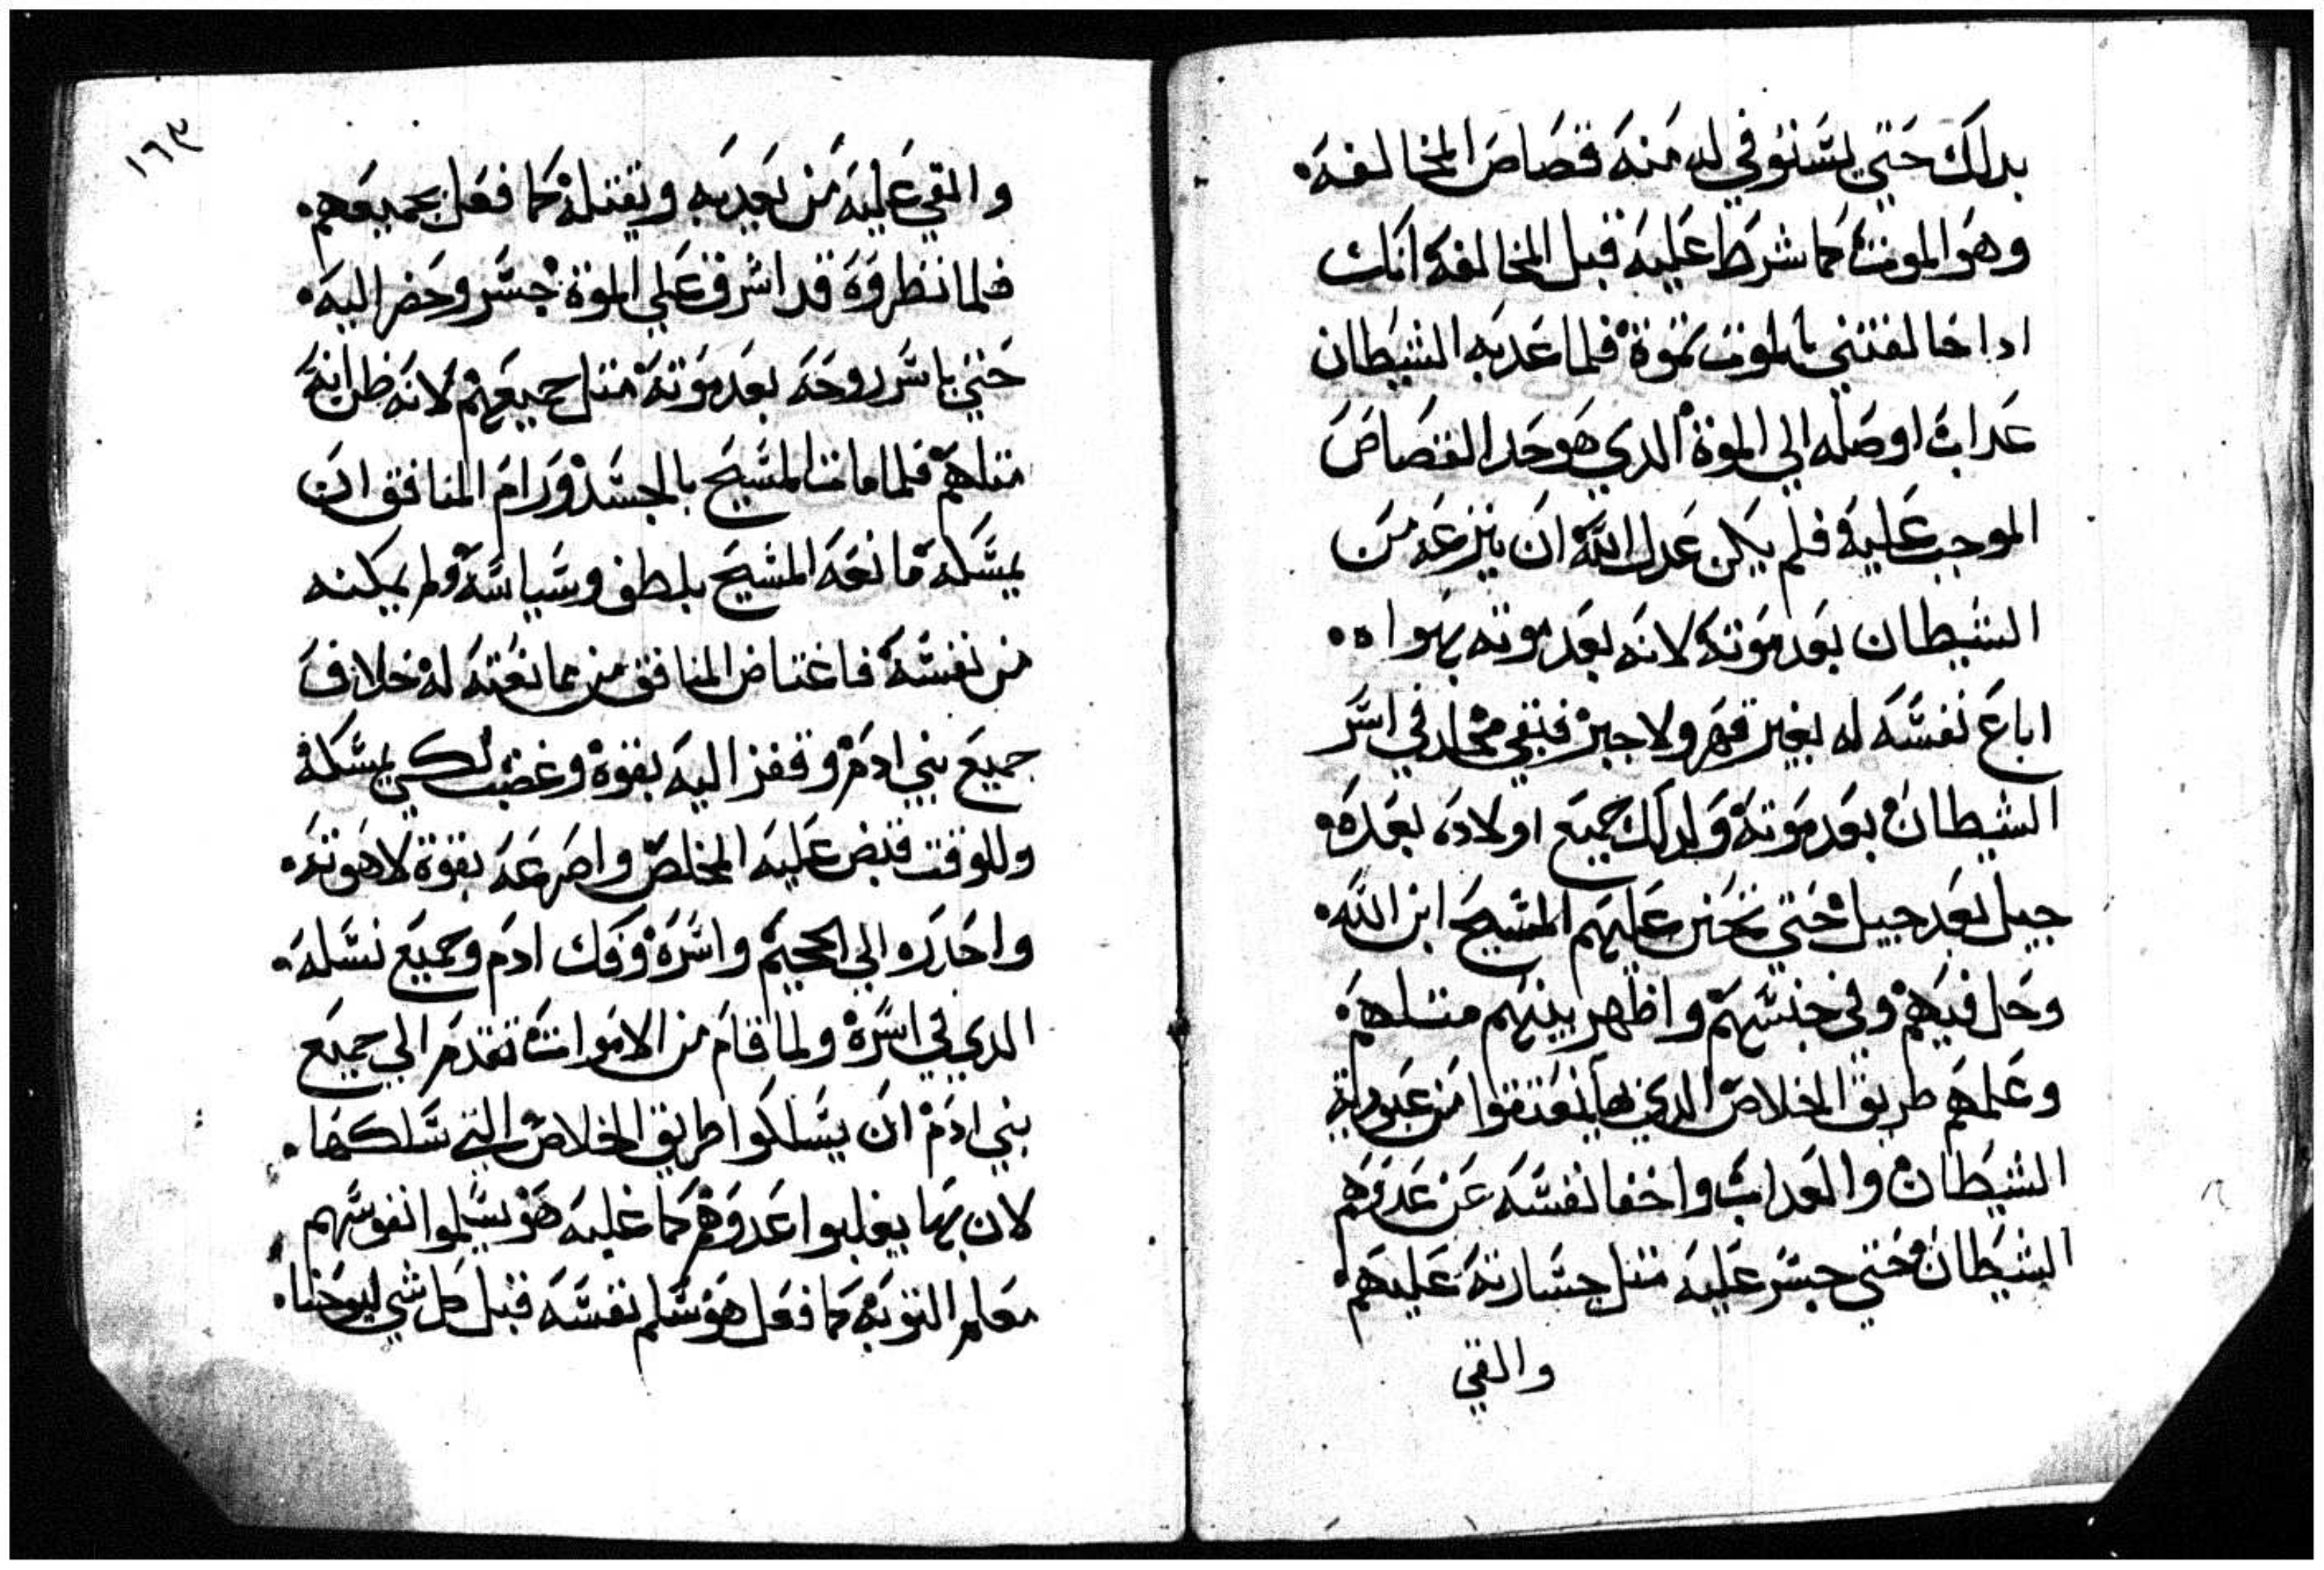 بدلك حتي يستوفي له منه قصاص المخالفه.
وهو الموت كما شرط عليه قبل المخالفه انك
ادا خالفتني بالموت تموة فلما عدبه الشيطان
عداب اوصله الي الموة الدي هو حد القصاص
الموجب عليه فلم يكن عدل الله ان ينزعه من
الشيطان بعد موته لانه بعد موته بهواه.
اباع نفسه له بغير قهر ولا جبر فبقي مخلد في اسر
الشيطان بعد موته ولدلك جميع اولاده بعده.
جيل بعد جيل حتي تحنن عليهم المسيح ابن الله.
وحل فيهم وفي جنسهم واظهر بينهم متلهم.
وعلمهم طريق الخلاص الدي بها ينعتقوا من عبودية
الشيطان والعداب واخفا نفسه عن عدوهم
الشيطان حتي جسر عليه متل جسارته عليهم.
والقي
١٦٣
والقي عليه من يعدبه ويقتله كما فعل بجميعهم.
فلما نظروه قد اشرف علي الموة جسر وحضر اليه.
حتي ياسر روحه بعد موته متل جميعهم لانه ظن انه
متلهم فلما مات المسيح بالجسد ورام المنافق ان
يمسكه مانعه المسيح بلطف وسياسه ولم يمكنه
من نفسه فاغتاض المنافق من ممانعته له خلاف
جميع بني ادم وقفز اليه بقوة وغضب لكي يمسكه
وللوقت قبض عليه المخلص واصرعه بقوة لاهوته.
واحدره الي الجحيم واسره وفك ادم وجميع نسله.
الدي في اسره ولما قام من الاموات تقدم الي جميع
بني ادم ان يسلكوا طريق الخلاص التي سلكها.
لان بها يغلبوا عدوهم كما غلبه هو يسلموا نفوسهم
معلم التوبه كما فعل هو سلم نفسه قبل كل شي ليوحنا.